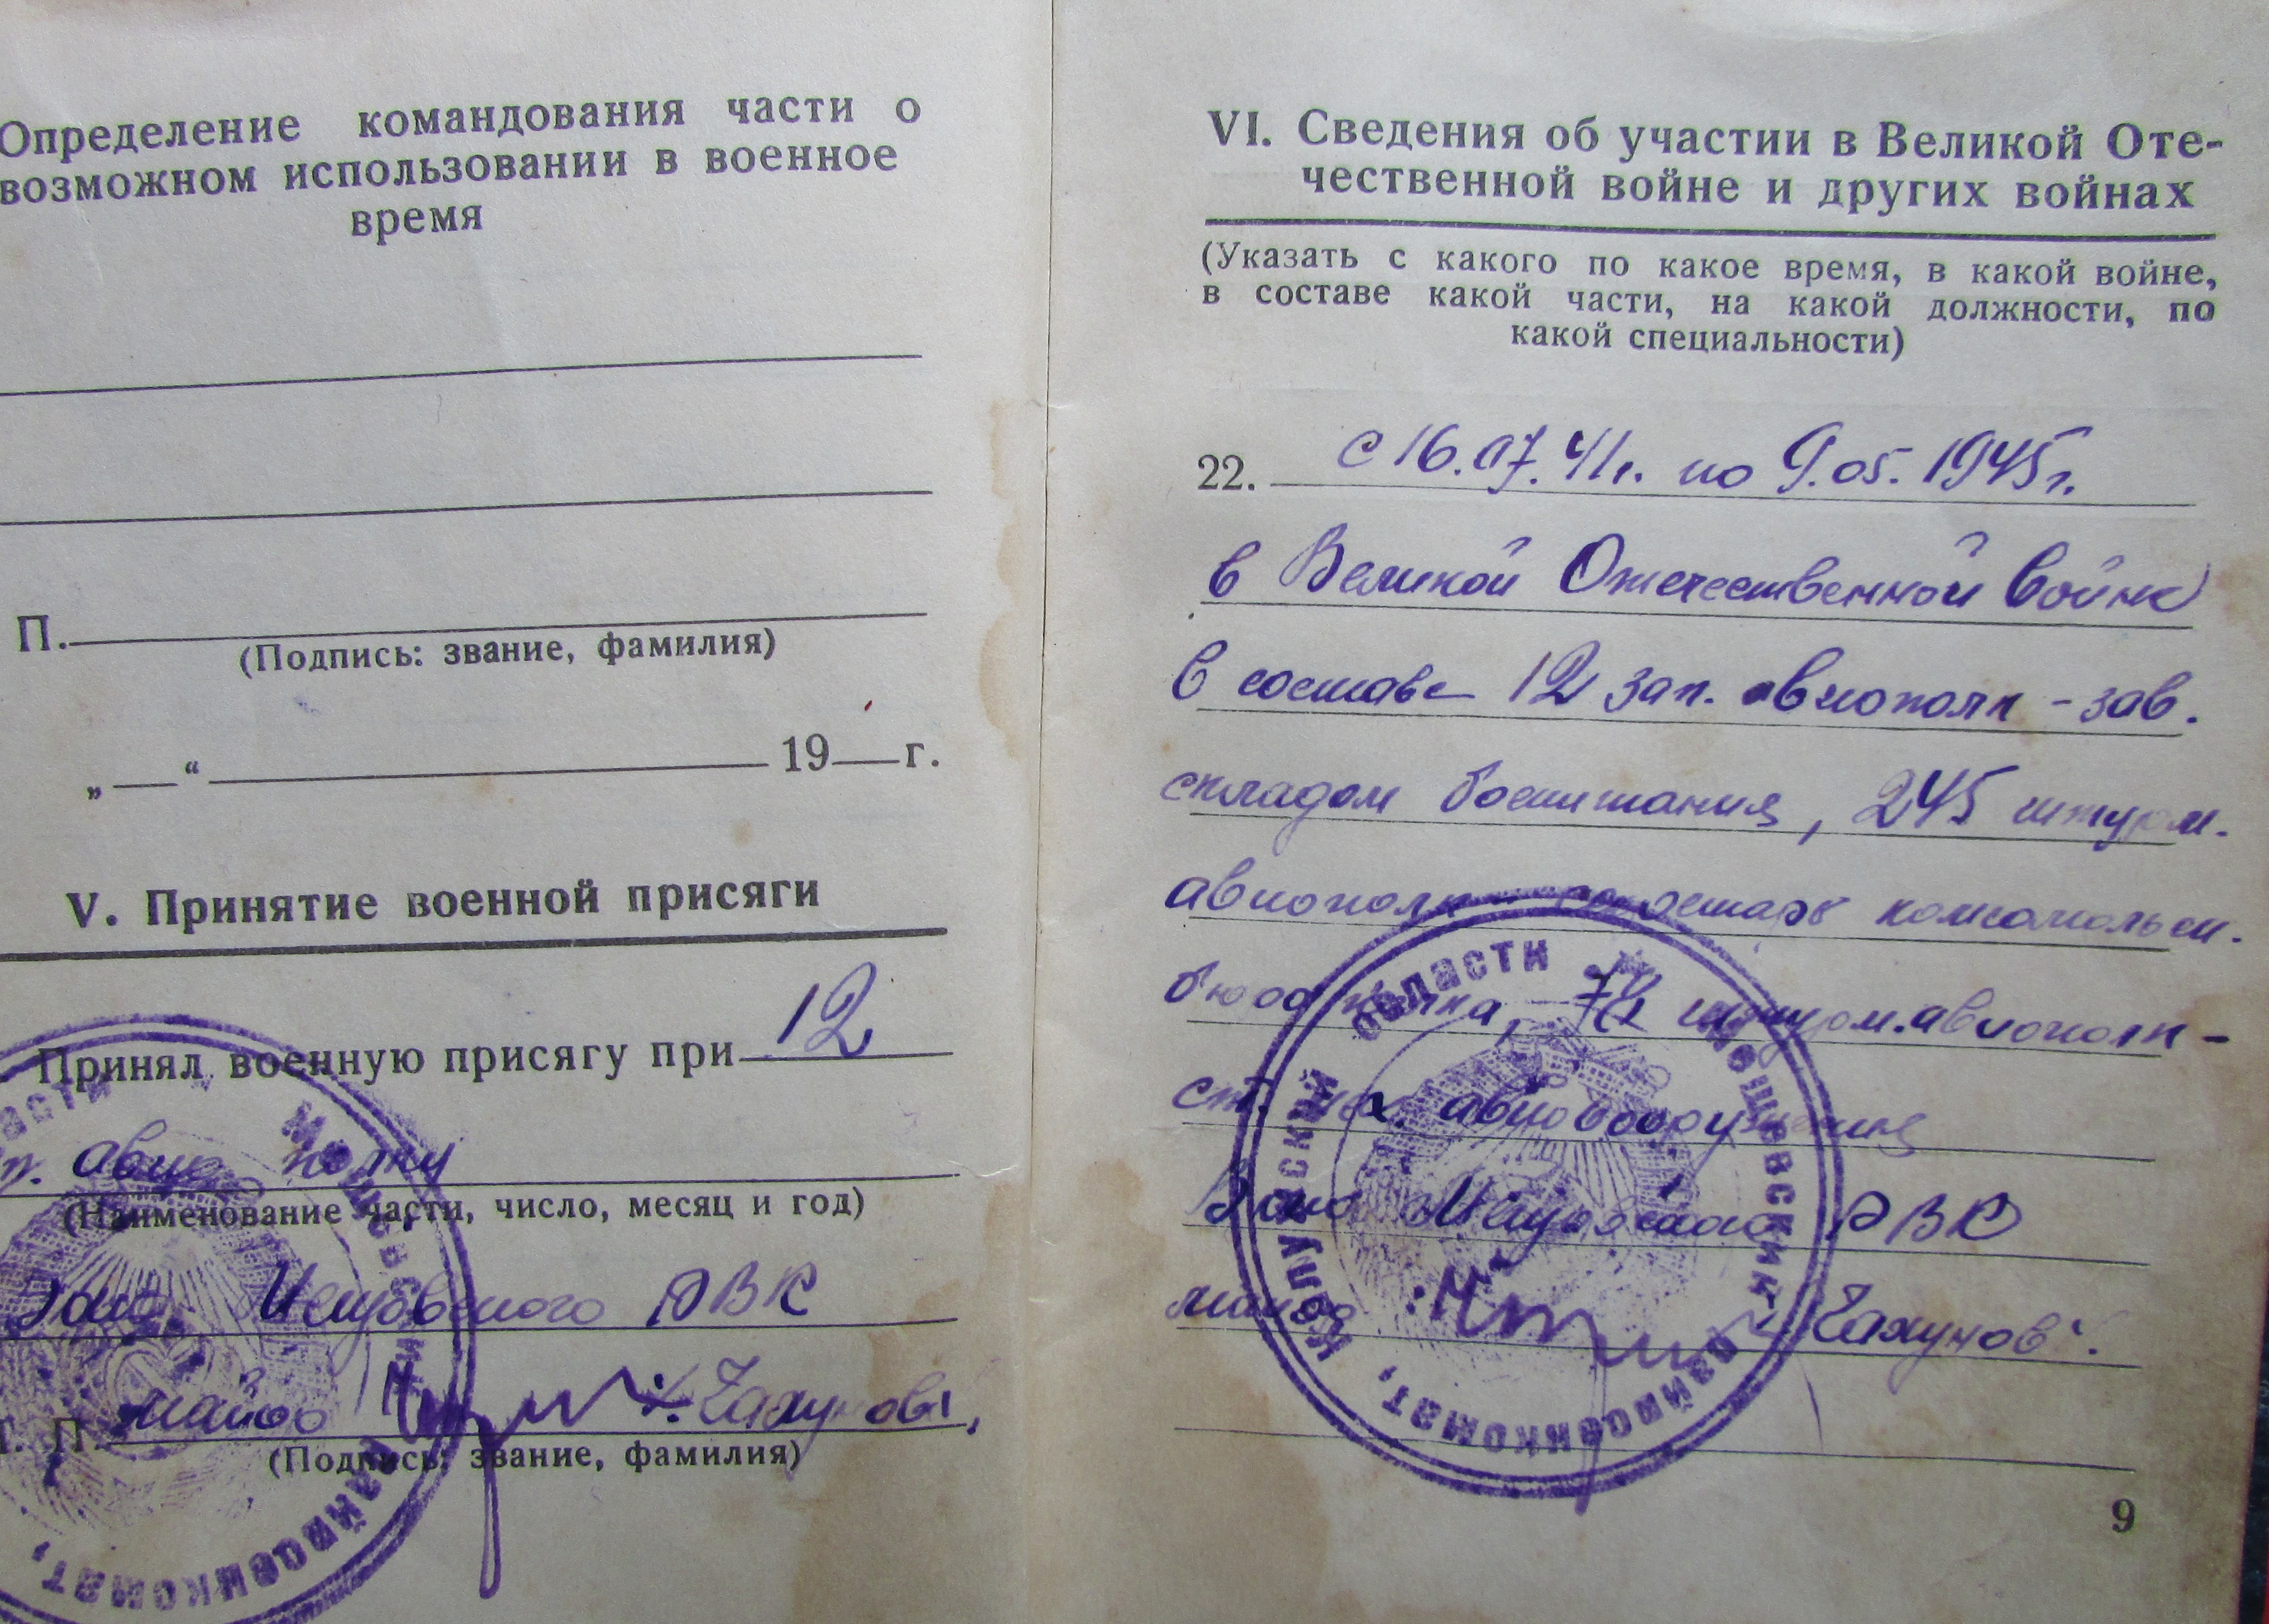 Определение командования части о
возможном использовании в военное
время
П.
(Подпись: звание, фамилия)
„ “ 19 г.
V. Принятие военной присяги
Принял военную присягу при 12
п. авиа полку
(Наименование части, число, месяц и год)
Мещовского РВК
Т. П. майор Чахунов
(Подпись: звание, фамилия)
Мещовский райвоенкомат,
VI. Сведения об участии в Великой Оте-
чественной войне и других войнах
(Указать с какого по какое время, в какой войне,
в составе какой части, на какой должности, по
какой специальности)
22. с 16.07.41г. по 9.05.1945г.
в Великой Отечественной войне
в составе 12 зап. авиополк - зав.
складом боепитания, 245 штурм.
авиополк секретарь комсомольск.
бюро полка, штурм.авиополк -
ст. мех. авиовооружения
Мещовского РВК
майор Чахунов
Мещовский райвоенкомат, Калужский области
9